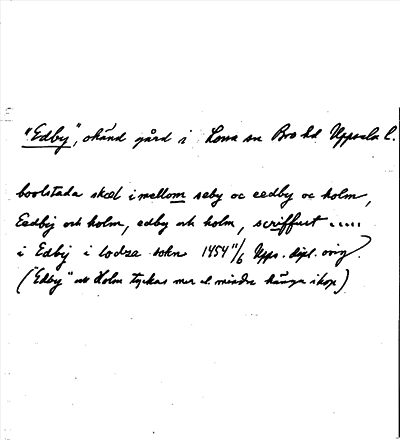 "Edby", okänd gård i Lossa sn Bro hd Uppsala l.
boolstada skæl i mellom seby oc eedby oc holm,
Eedby och holm, edby och holm, scriffuet .....
i Edby i lodza sokn 1454 11/6 Upps. dipl. orig.
("Edby" och Holm tyckas mer el. mindre hänga ihop)